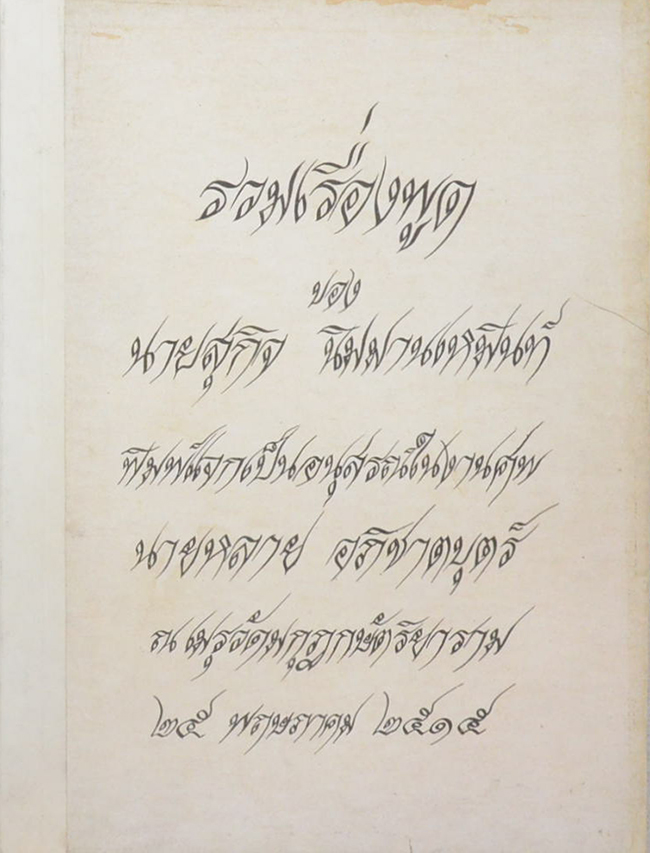 รวมเรื่องพูด
ของ
นายสุกิจ นิมมานเหมินท์
พิมพ์แจกเป็นอนุสรณ์ในงานศพ
นายหลาย อภิชาตบุตร์
ณ เมรุวัดมกุฎกษัตริยาราม
๒๕ พฤษภาคม ๒๕๑๕